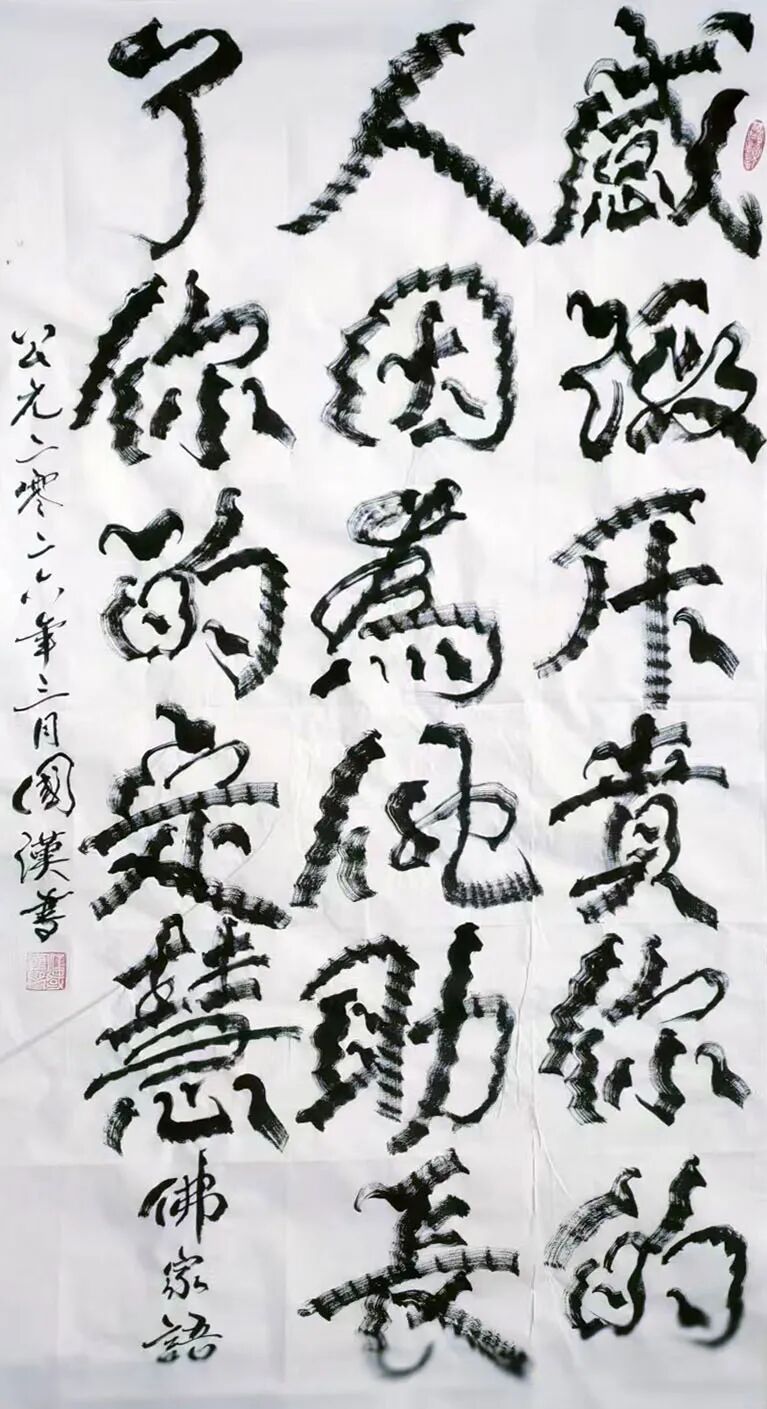 感激斥責你的
人因為他助長
了你的定慧
佛家語
公元二零二六年三月國漢書